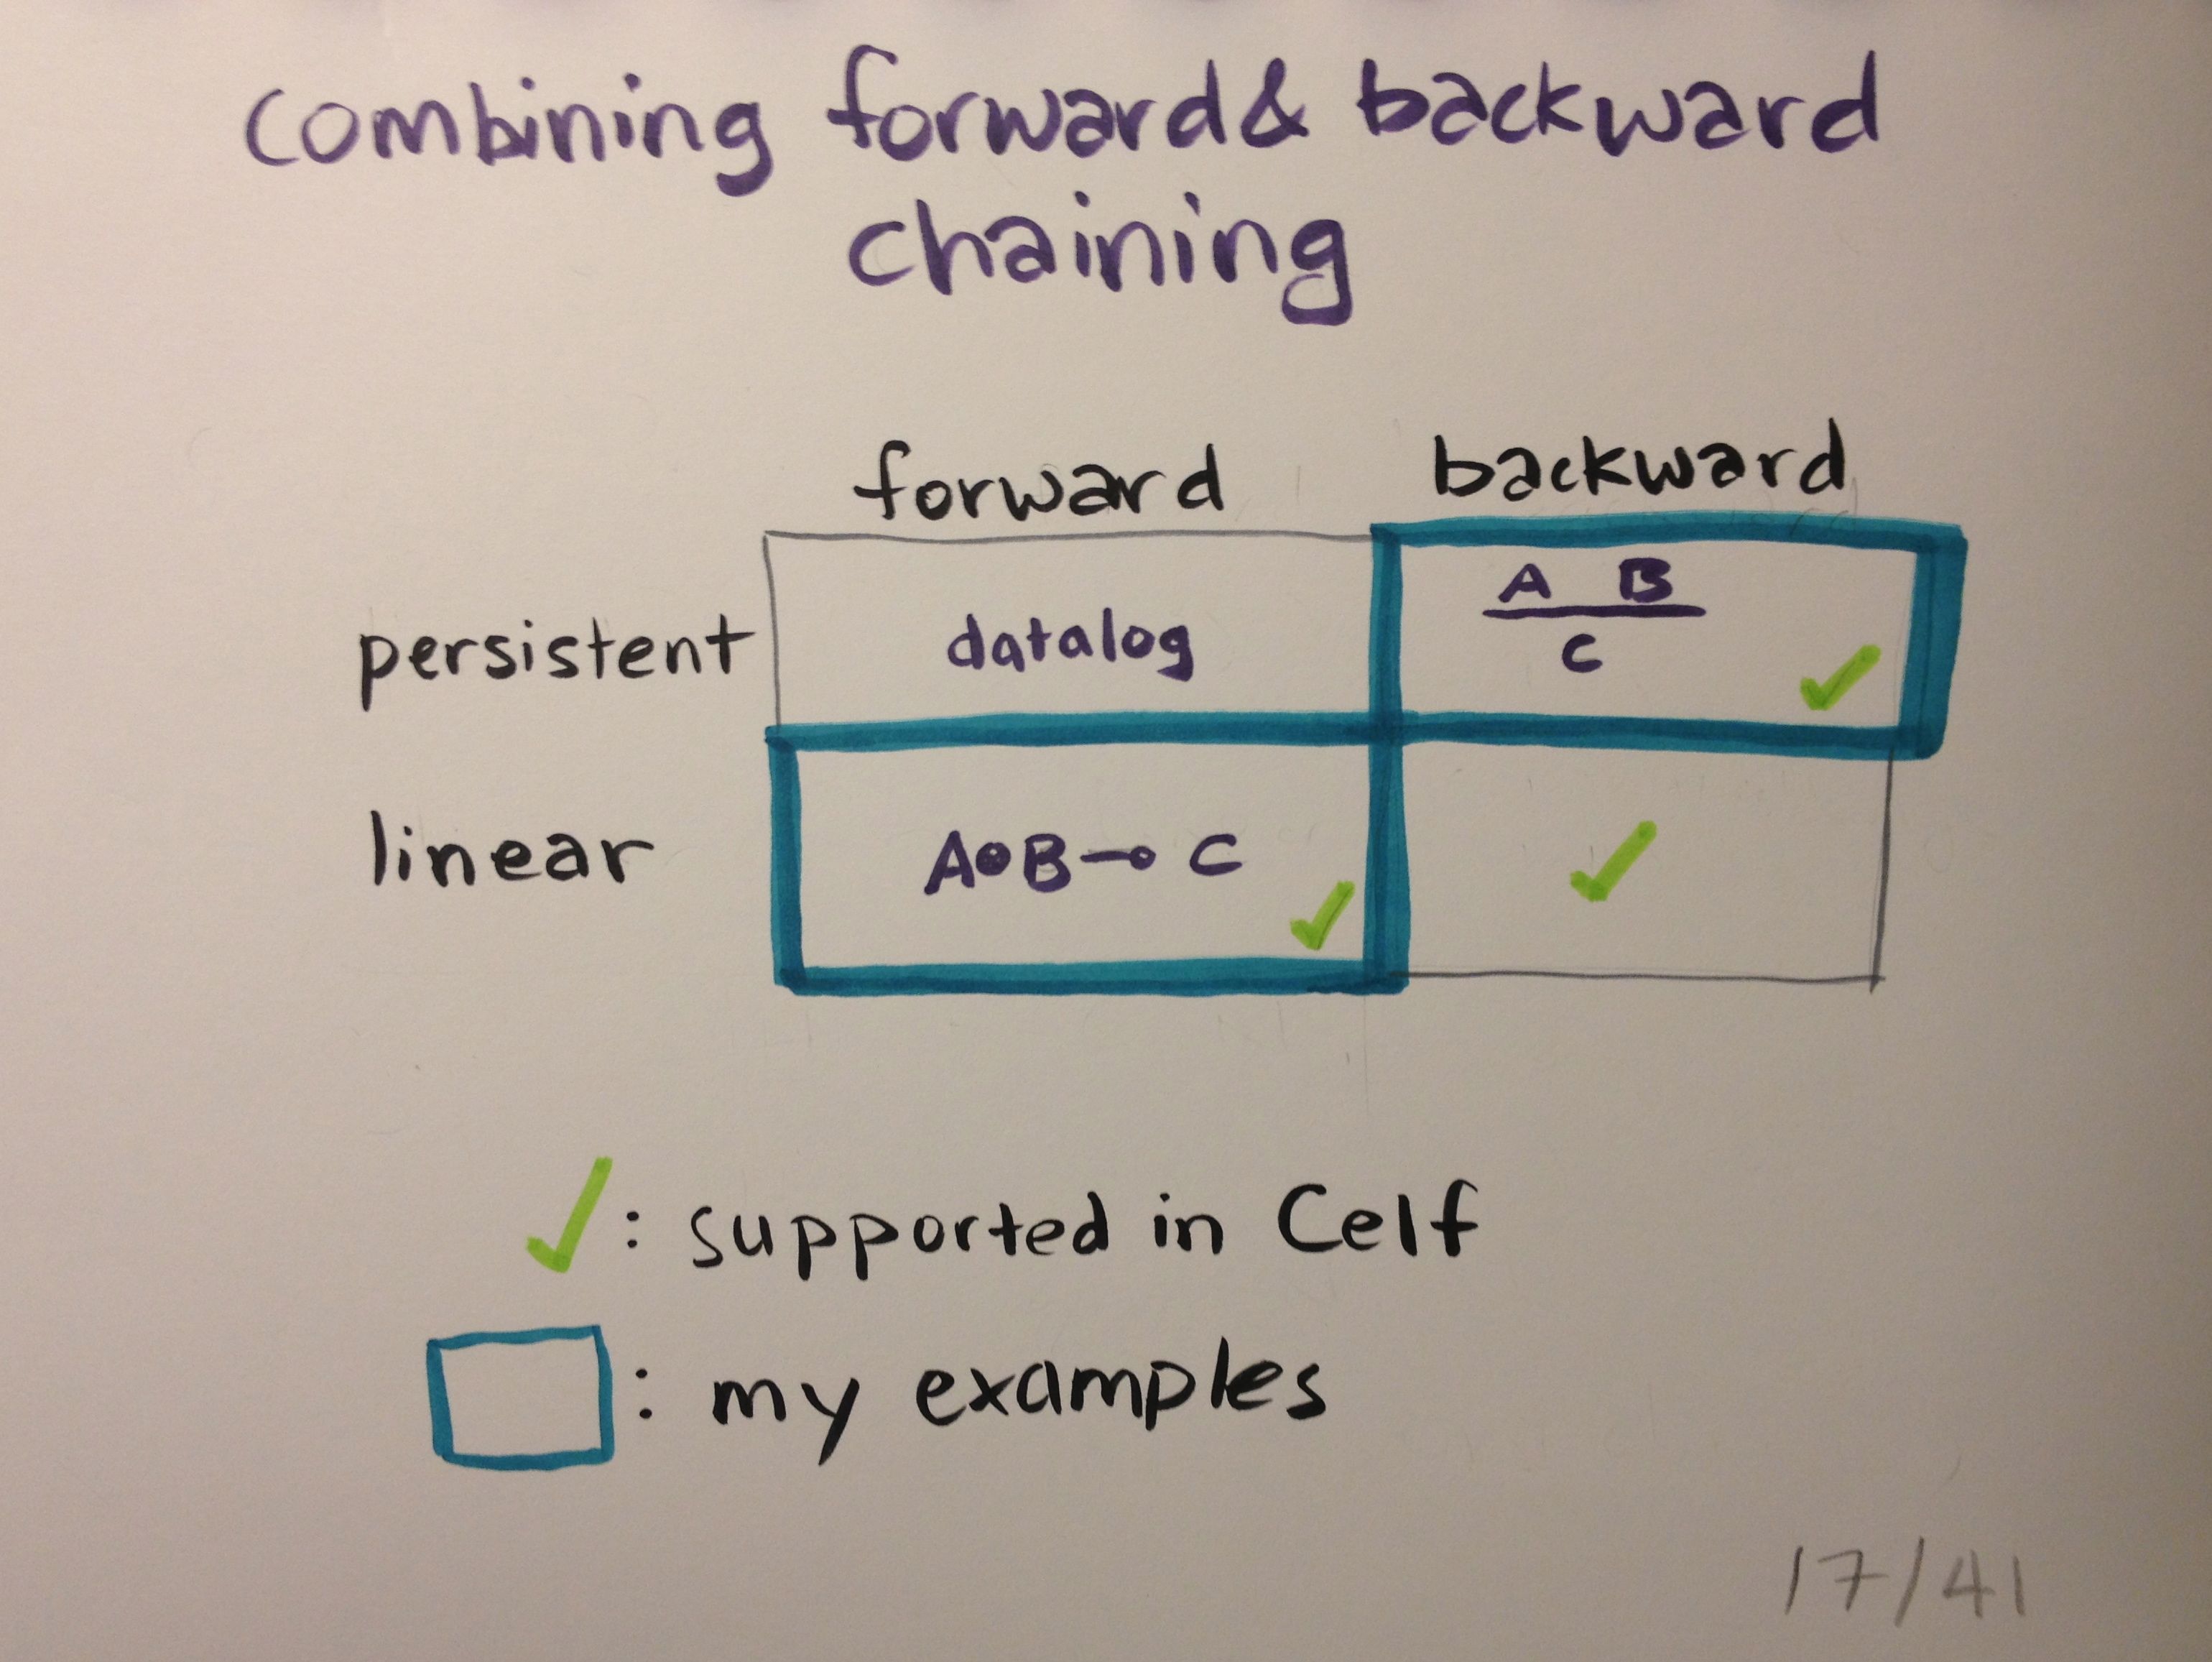 combining forward & backward
chaining
forward backward
persistent datalog A B
C ✓
linear A•B⊸C ✓ ✓
✓: supported in Celf
: my examples
17/41